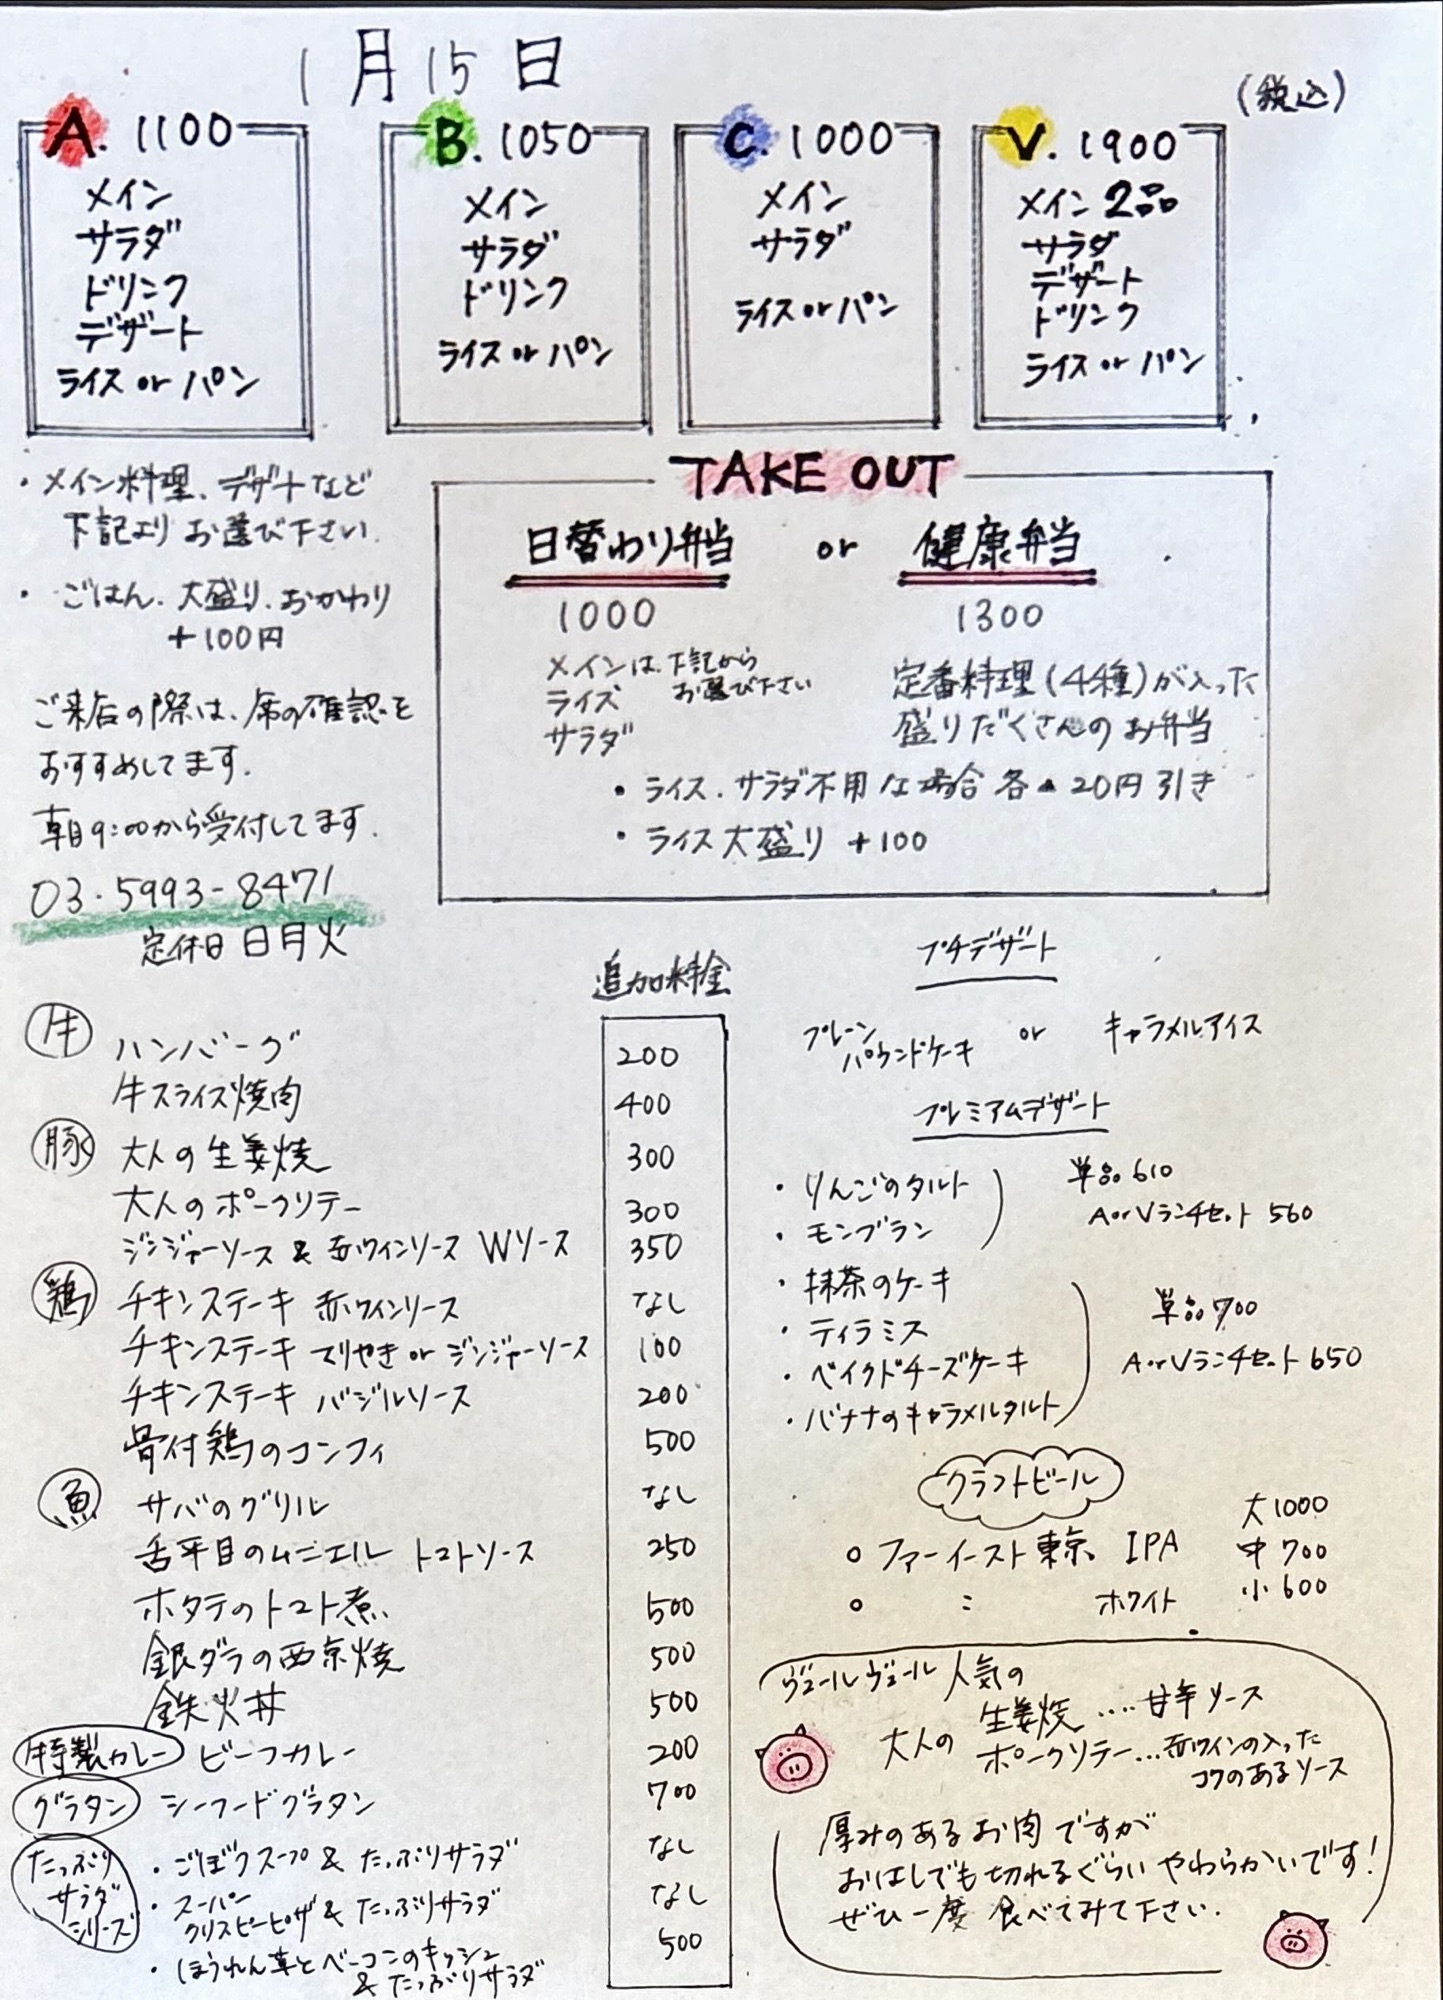 1月15日
(税込)
A. 1100
メイン
サラダ
ドリンク
デザート
ライス or パン
B. 1050
メイン
サラダ
ドリンク
ライス or パン
C. 1000
メイン
サラダ
ライス or パン
V. 1900
メイン 2品
サラダ
デザート
ドリンク
ライス or パン
・メイン料理、デザートなど
下記より お選び下さい.
・ごはん、大盛り、おかわり
+100円
ご来店の際は、席の確認を
おすすめしてます.
朝9:00から受付してます.
03.5993-8471
定休日 日月火
TAKE OUT
日替わり弁当 or 健康弁当
1000
メインは、下記から
お選び下さい
ライス
サラダ
1300
定番料理(4種)が入った
盛りだくさんのお弁当
・ライス、サラダ不用な場合 各▲20円引き
・ライス大盛り +100
追加料金
牛 ハンバーグ 200
牛スライス焼肉 400
豚 大人の生姜焼 300
大人のポークソテー 300
ジンジャーソース & 赤ワインソース Wソース 350
鶏 チキンステーキ 赤ワインソース なし
チキンステーキ てりやき or ジンジャーソース 100
チキンステーキ バジルソース 200
骨付鶏のコンフィ 500
魚 サバのグリル なし
舌平目のムニエル トマトソース 250
ホタテのトマト煮 500
銀ダラの西京焼 500
鉄火丼 500
特製カレー ビーフカレー 200
グラタン シーフードグラタン 700
たっぷり
サラダ
シリーズ
・ごぼうスープ & たっぷりサラダ なし
・スーパー
クリスピーピザ & たっぷりサラダ なし
・ほうれん草とベーコンのキッシュ 500
& たっぷりサラダ
プチデザート
プレーン
パウンドケーキ or キャラメルアイス
プレミアムデザート
・りんごのタルト
・モンブラン
単品610
AorVランチセット 560
・抹茶のケーキ
・ティラミス
・ベイクドチーズケーキ
・バナナのキャラメルタルト
単品700
AorVランチセット 650
クラフトビール
○ ファーイースト東京 IPA
○ 〃 ホワイト
大1000
中700
小600
ヴェールヴェール 人気の
大人の 生姜焼 ・・・・ 甘辛ソース
ポークソテー・・・赤ワインの入った
コクのあるソース
厚みのあるお肉ですが
おはしでも切れるぐらい やわらかいです!
ぜひ一度 食べてみて下さい.